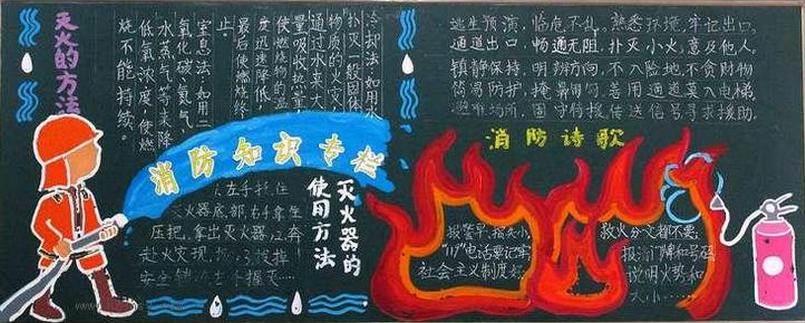 灭火的方法
冷却法:如用水
扑灭一般固体
物质的火灾,
通过水来大
量吸收热量,
使燃烧物的温
度迅速降低,
最后使燃烧终
止。
窒息法:如用二
氧化碳、氮气、
水蒸气等来降
低氧浓度,使燃
烧不能持续。
逃生预演,临危不乱。熟悉环境,牢记出口。
通道出口,畅通无阻。扑灭小火,惠及他人。
镇静保持,明辨方向。不入险地,不贪财物
简易防护,掩鼻匍匐。善用通道,莫入电梯。
避难场所,固守待援。传送信号,寻求援助。
消防知识专栏
消防诗歌
灭火器的
使用方法
左手扶住
灭火器底部,右手拿
压把,拿出灭火器
赴火灾现
报警早,损失小,
"119"电话要记牢
社会主义制度好
救火分文都不要
报清门牌和号码
说明火势和
大小……